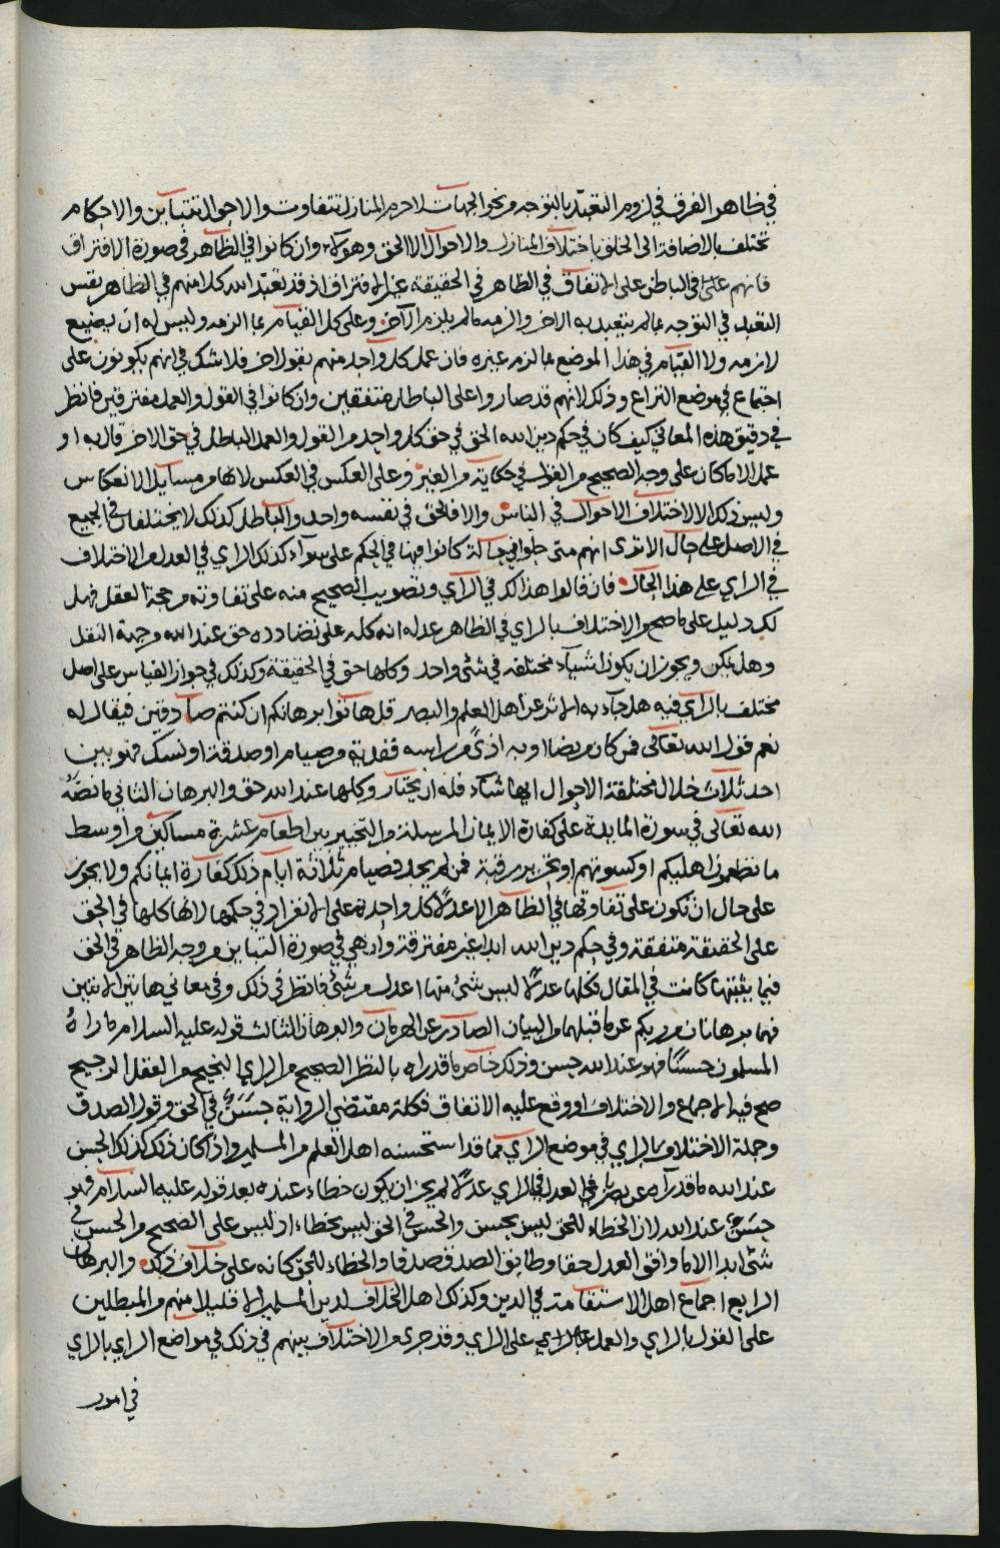 في ظاهر الفرق في لزوم التعبد بالتوجه من نحو الجهات لاجرم المنازل تتفاوت والاحوال تتباين والاحكام
تختلف بالاضافة الى الخلق باختلاف المنازل والاحوال الا الحق وهؤلاء وان كانوا في الظاهر في صورة الافتراق
فانهم على في الباطن على الاتفاق في الظاهر في الحقيقة غير الافتراق اذ قد تعبد الله كلا منهم في الظاهر بنفس
التعبد في التوجه بما لم يتعبد به الاخر والزمه مالم يلزم الآخر وعلى كل القيام بما الزمه وليس له ان يضيع
لازمه ولا القيام في هذا الموضع بما لزم غيره فان عمل كل واحد منهم بقول الاخر فلا شك في انهم يكونون على
اجتماع في موضع النزاع وذلك لانهم قد صاروا على الباطل متفقين وان كانوا في القول والعمل مفترقين فانظر
في دقيق هذه المعاني كيف كان في حكم دين الله الحق في حق كل واحد من القول والعمل الباطل في حق الاخر قال به او
عمل الا ما كان على وجه الصحيح من القول في حكايته من الغير وعلى العكس في العكس لانها من مسايل الانعكاس
وليس ذلك الا لاختلاف الاحوال في الناس والا فالحق في نفسه واحد والباطل كذلك لا يختلفان في الجميع
في الاصل على حال الا ترى انهم متى حلوا في حالة كانوا فيها في الحكم على سواء كذلك الراي في العدل والاختلاف
في الراي على هذا الحال فان قالوا هذا لك في الرأي وتصويب الصحيح منه على تفاوته من حجة العقل فهل
لك دليل على ما صح والاختلاف بالراي في الظاهر عدله انه كله على تضادده حق عند الله من جهة النقل
وهل يمكن ويجوز ان يكون اشياء مختلفة في شئ واحد وكلها حق في الحقيقة وكذلك في جواز القياس على اصل
مختلف بالراي فيه هل جاء به الاثر عن اهل العلم والبصر قل هاتوا برهانكم ان كنتم صادقين فيقال له
نعم قول الله تعالى فمن كان مريضا او به اذى من راسه ففدية من صيام او صدقة او نسك فهو بين
احد ثلاث خلال مختلفة الاحوال ايها شاء فله ان يختار وكلها عند الله حق والبرهان الثاني ما نصه
الله تعالى في سورة المايدة على كفارة الايمان المرسلة والتخيير بين اطعام عشرة مساكين من اوسط
ما تطعمون اهليكم او كسوتهم او تحرير رقبة فمن لم يجد فصيام ثلاثة ايام ذلك كفارة ايمانكم ولا يجوز
على حال ان تكون على تفاوتها في الظاهر الا عدلا كل واحدة على الانفراد في حكمها لانها كلها في الحق
على الحقيقة متفقة وفي حكم دين الله ابدا غير مفترقة وان هي في صورة التباين من وجه الظاهر في الحق
فيما بينها كانت في المقال فكلها عدلا ليس شئ منها اعدل من شئ فانظر في ذلك وفي معاني هاتين الاثنين
فهما برهانان من ربكم عن ما قبلهما والبيان الصادر عن البرهان والبرهان الثالث قوله عليه السلام ما راه
المسلمون حسنًا فهو عند الله حسن وذلك خاص ما قد راه بالنظر الصحيح من الراي النجيح من العقل الرجيح
صح فيه الاجماع والاختلاف او وقع عليه الاتفاق فكله مقتضي الرواية حسن في الحق من قول الصدق
وجملة الاختلاف بالراي في موضع الراي مما قد استحسنه اهل العلم من المسلمين واذا كان ذلك كذلك الحسن
عند الله ما قد رآه عن بصر في العدل في الراي عدلا لم يجز ان يكون خطاء عنده بعد قوله عليه السلام فهو
حسن عند الله لان الخطاء للحق ليس بحسن والحسن في الحق ليس بخطاء اذ ليس على الصحيح من الحسن في
شئ ابدا الا ما وافق العدل حقا وطابق الصدق صدقا والخطاء للحق كانه على خلاف ذلك والبرهان
الرابع اجماع اهل الاستقامة في الدين وكذلك اهل الخلاف لدين المسلمين الا قليلا منهم من المبطلين
على القول بالراي والعمل بالراي على الراي وقد جرى من الاختلاف بينهم في ذلك في مواضع الراي بالراي
في امور